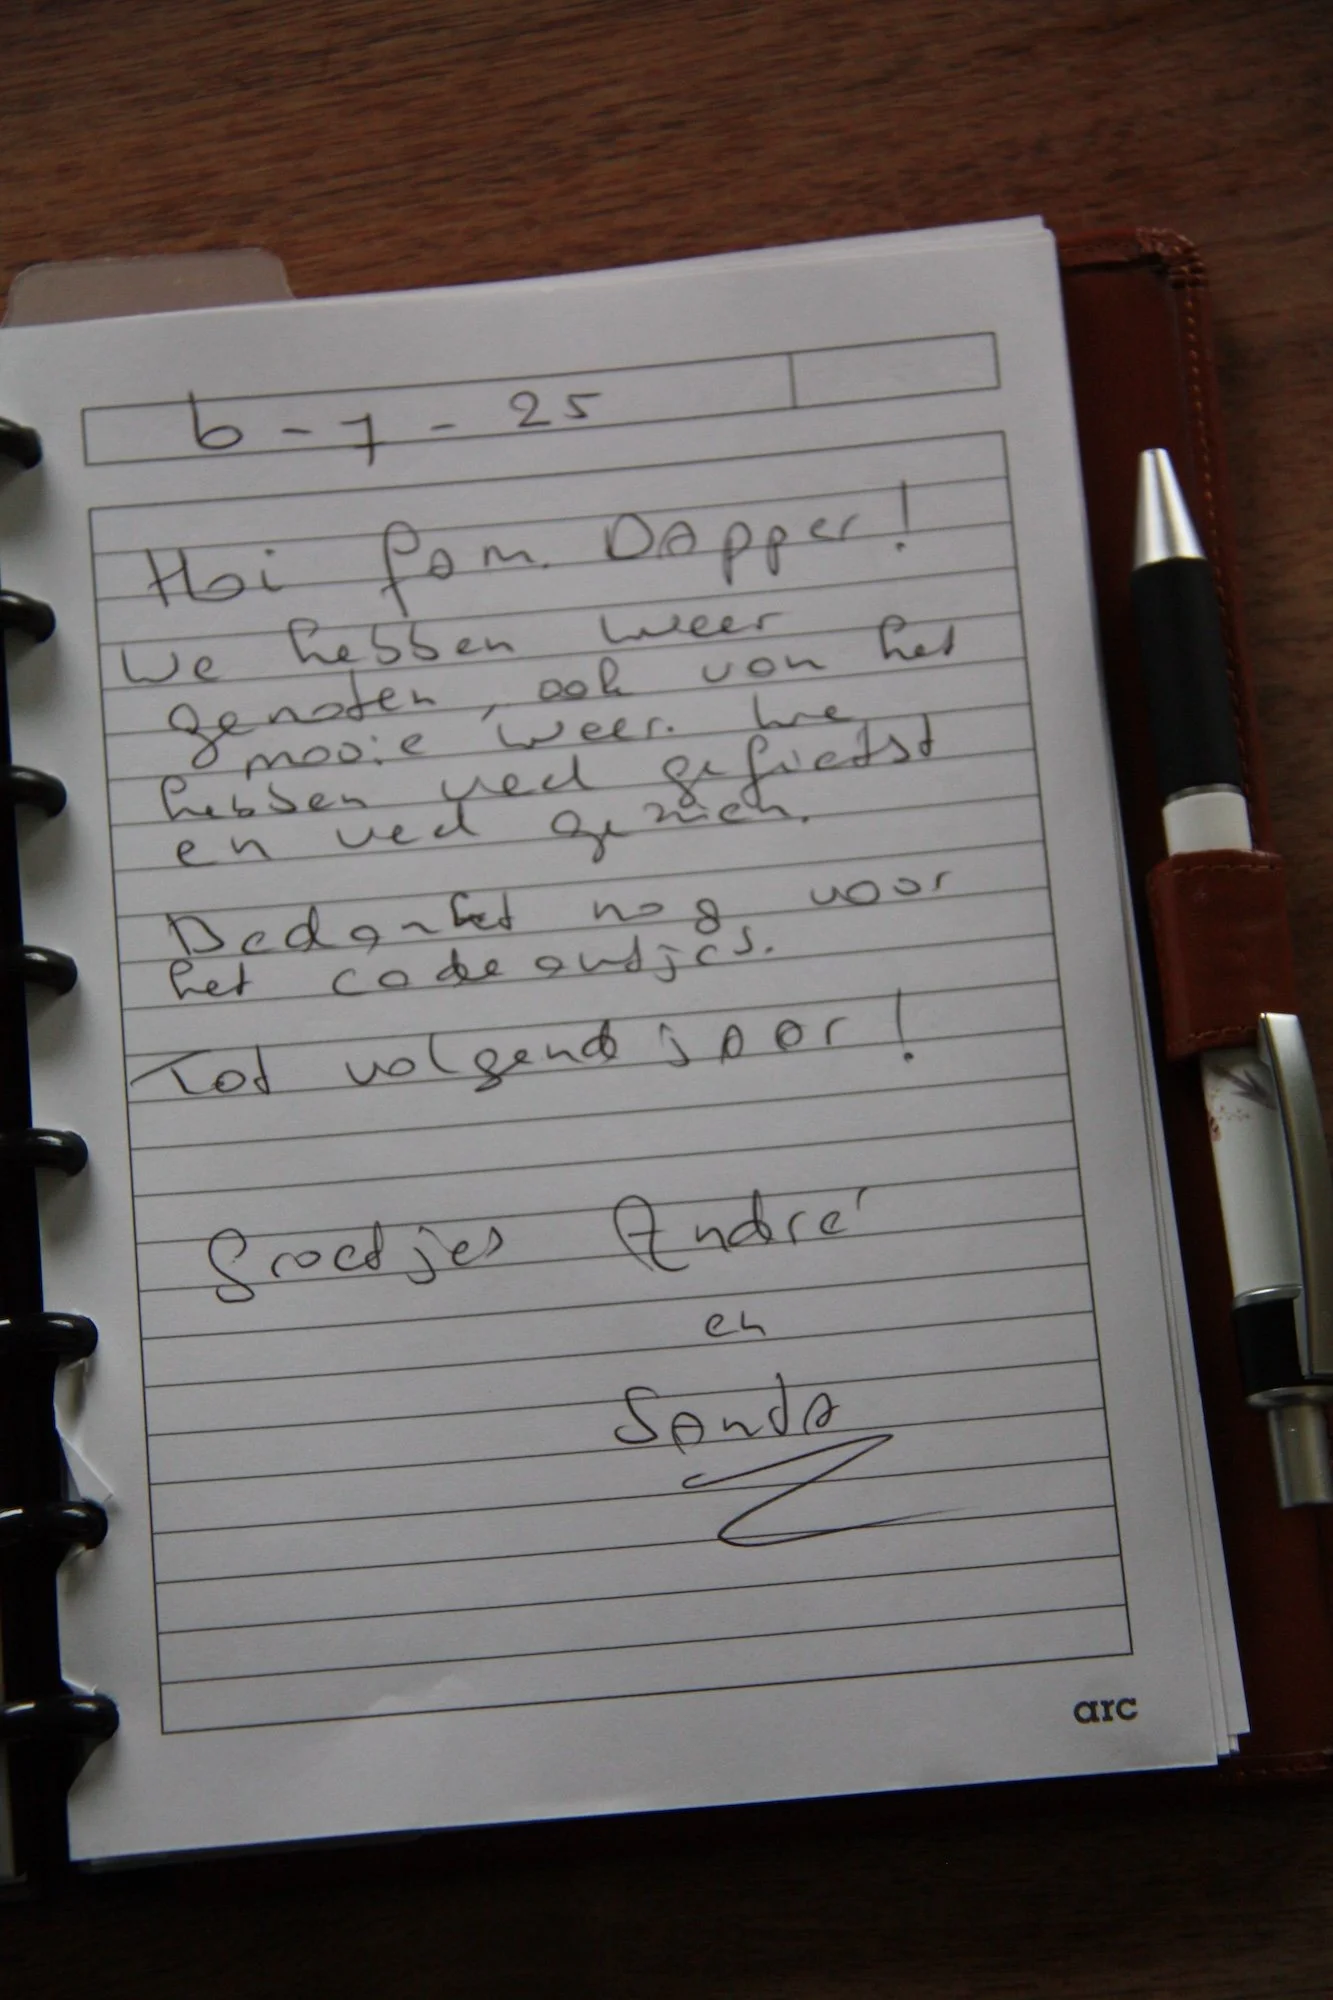 6-7-25
Hoi fam. Dapper!
We hebben weer
genoten, ook van het
mooie weer. We
hebben veel gefietst
en veel gezien.
Bedankt nog voor
het cadeautjes.
Tot volgend jaar!
Groetjes André
en
Sanda
arc